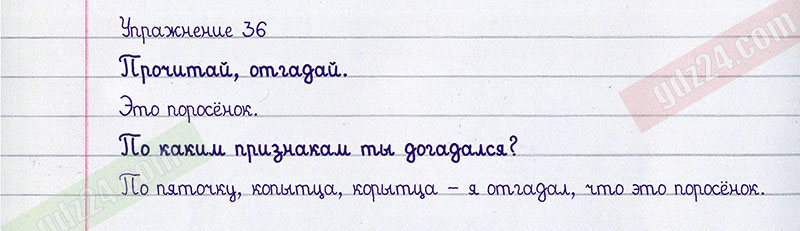 Упражнение 36
gdz24.com
Прочитай, отгадай.
Это поросёнок.
По каким признакам ты догадался?
По пяточку, копытца, корытца – я отгадал, что это поросёнок.
gdz24.com